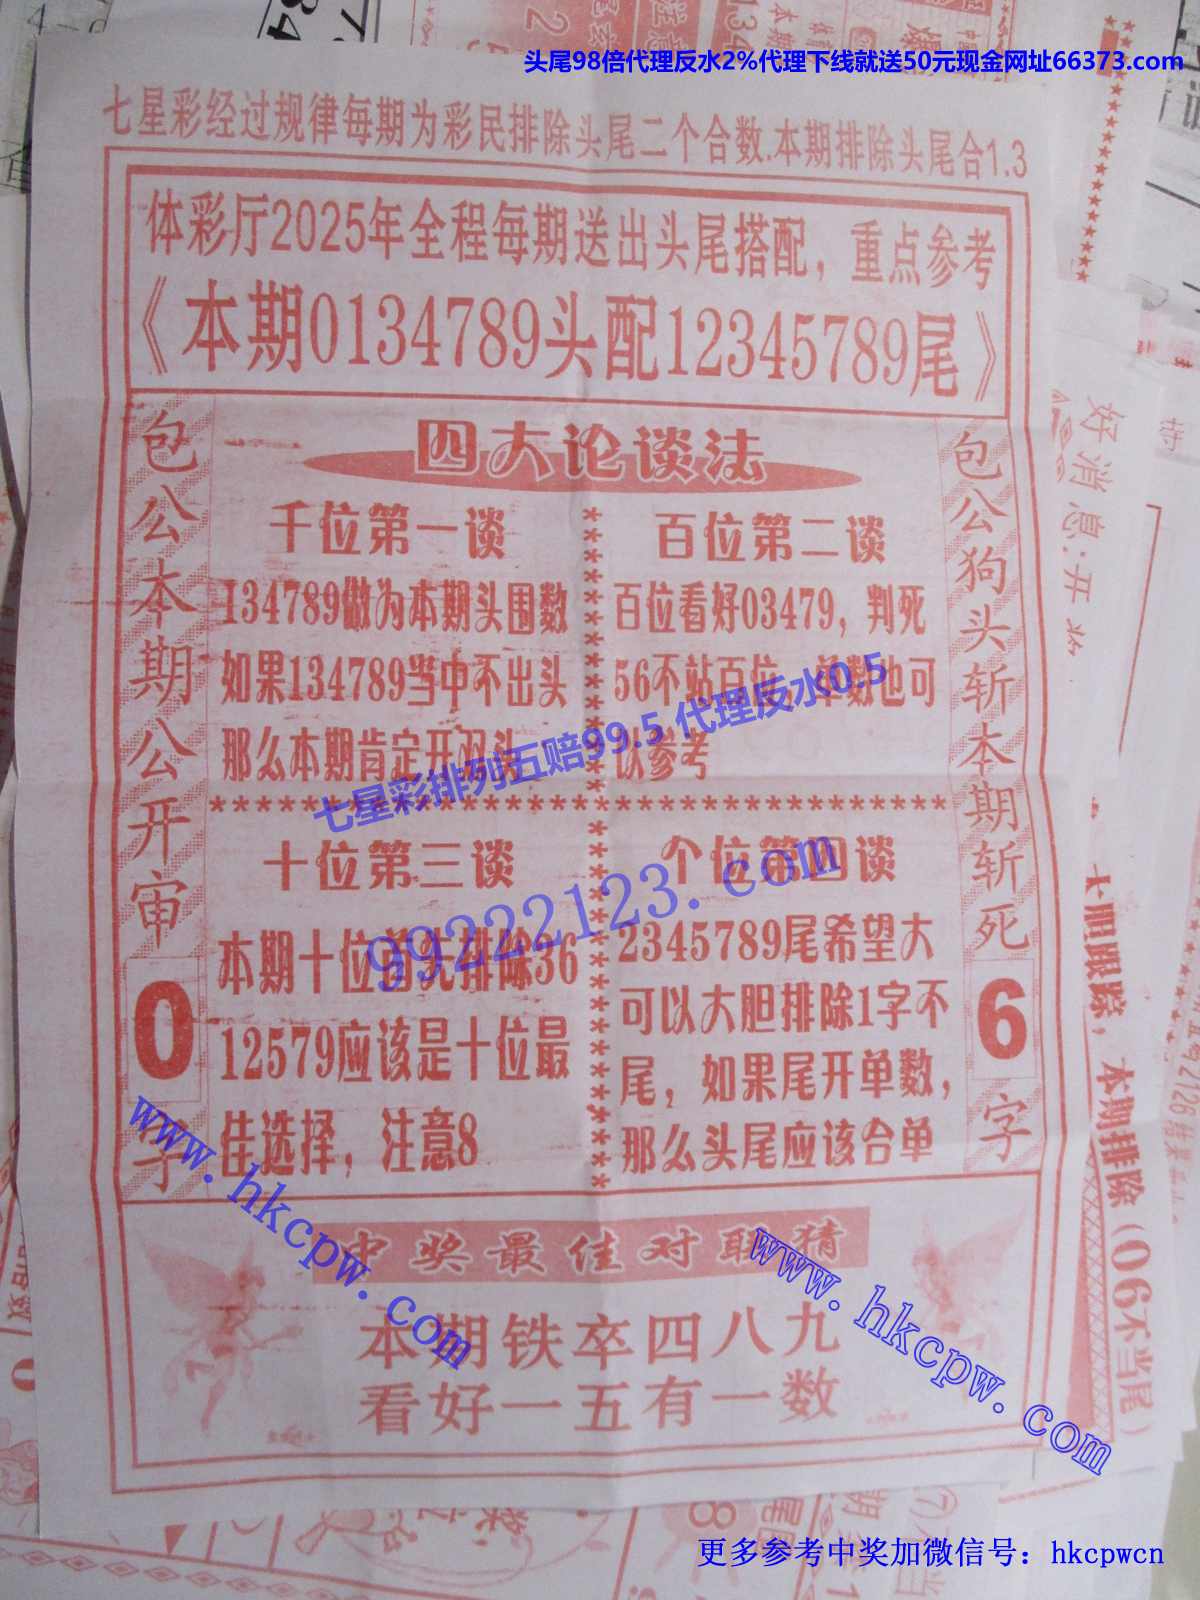 头尾98倍代理反水2%代理下线就送50元现金网址66373.com
七星彩经过规律每期为彩民排除头尾二个合数.本期排除头尾合1.3
体彩厅2025年全程每期送出头尾搭配，重点参考
《本期0134789头配12345789尾》
包公本期公开审
0
字
四大论谈法
千位第一谈
134789做为本期头围数
如果134789当中不出头
那么本期肯定开双头
百位第二谈
百位看好03479，判死
56不站百位，单数也可
以参考
七星彩排列五赔99.5 代理反水0.5
十位第三谈
本期十位首先排除36
12579应该是十位最
佳选择，注意8
个位第四谈
2345789尾希望大
可以大胆排除1字不
尾，如果尾开单数，
那么头尾应该合单
99222123.com
包公狗头斩本期斩死
6
字
中奖最佳对联猜
本期铁卒四八九
看好一五有一数
www.hkcpw.com
www.hkcpw.com
好消息:开奖
大胆跟踪，本期排除(06不当尾)
更多参考中奖加微信号：hkcpwcn